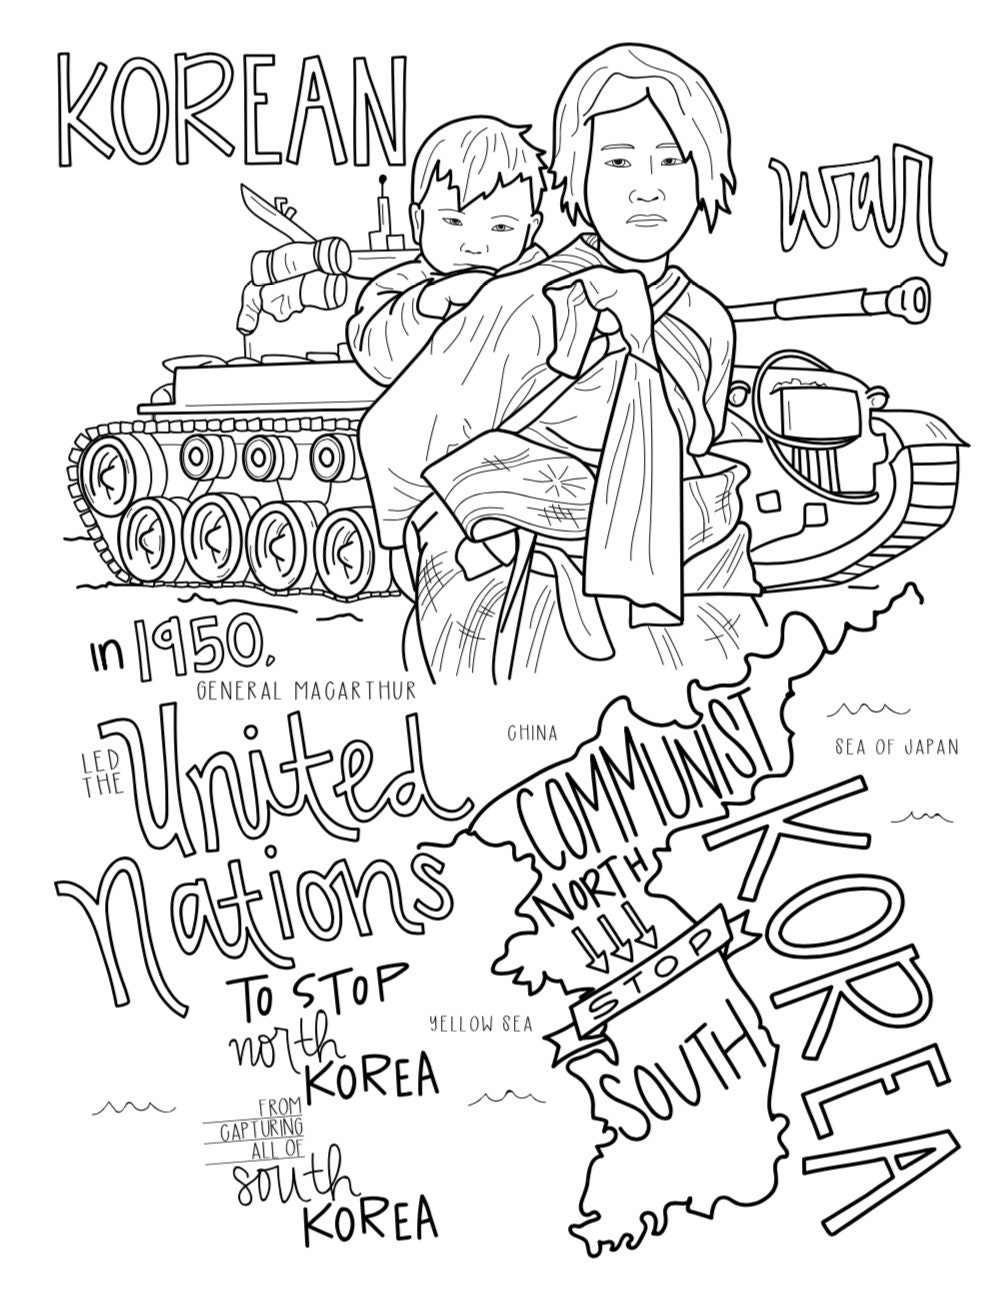 KOREAN
war
in 1950,
GENERAL MACARTHUR
LED
THE
United
Nations
TO STOP
north
KOREA
FROM
CAPTURING
ALL OF
south
KOREA
CHINA
SEA OF JAPAN
YELLOW SEA
COMMUNIST
NORTH
STOP
SOUTH
KOREA